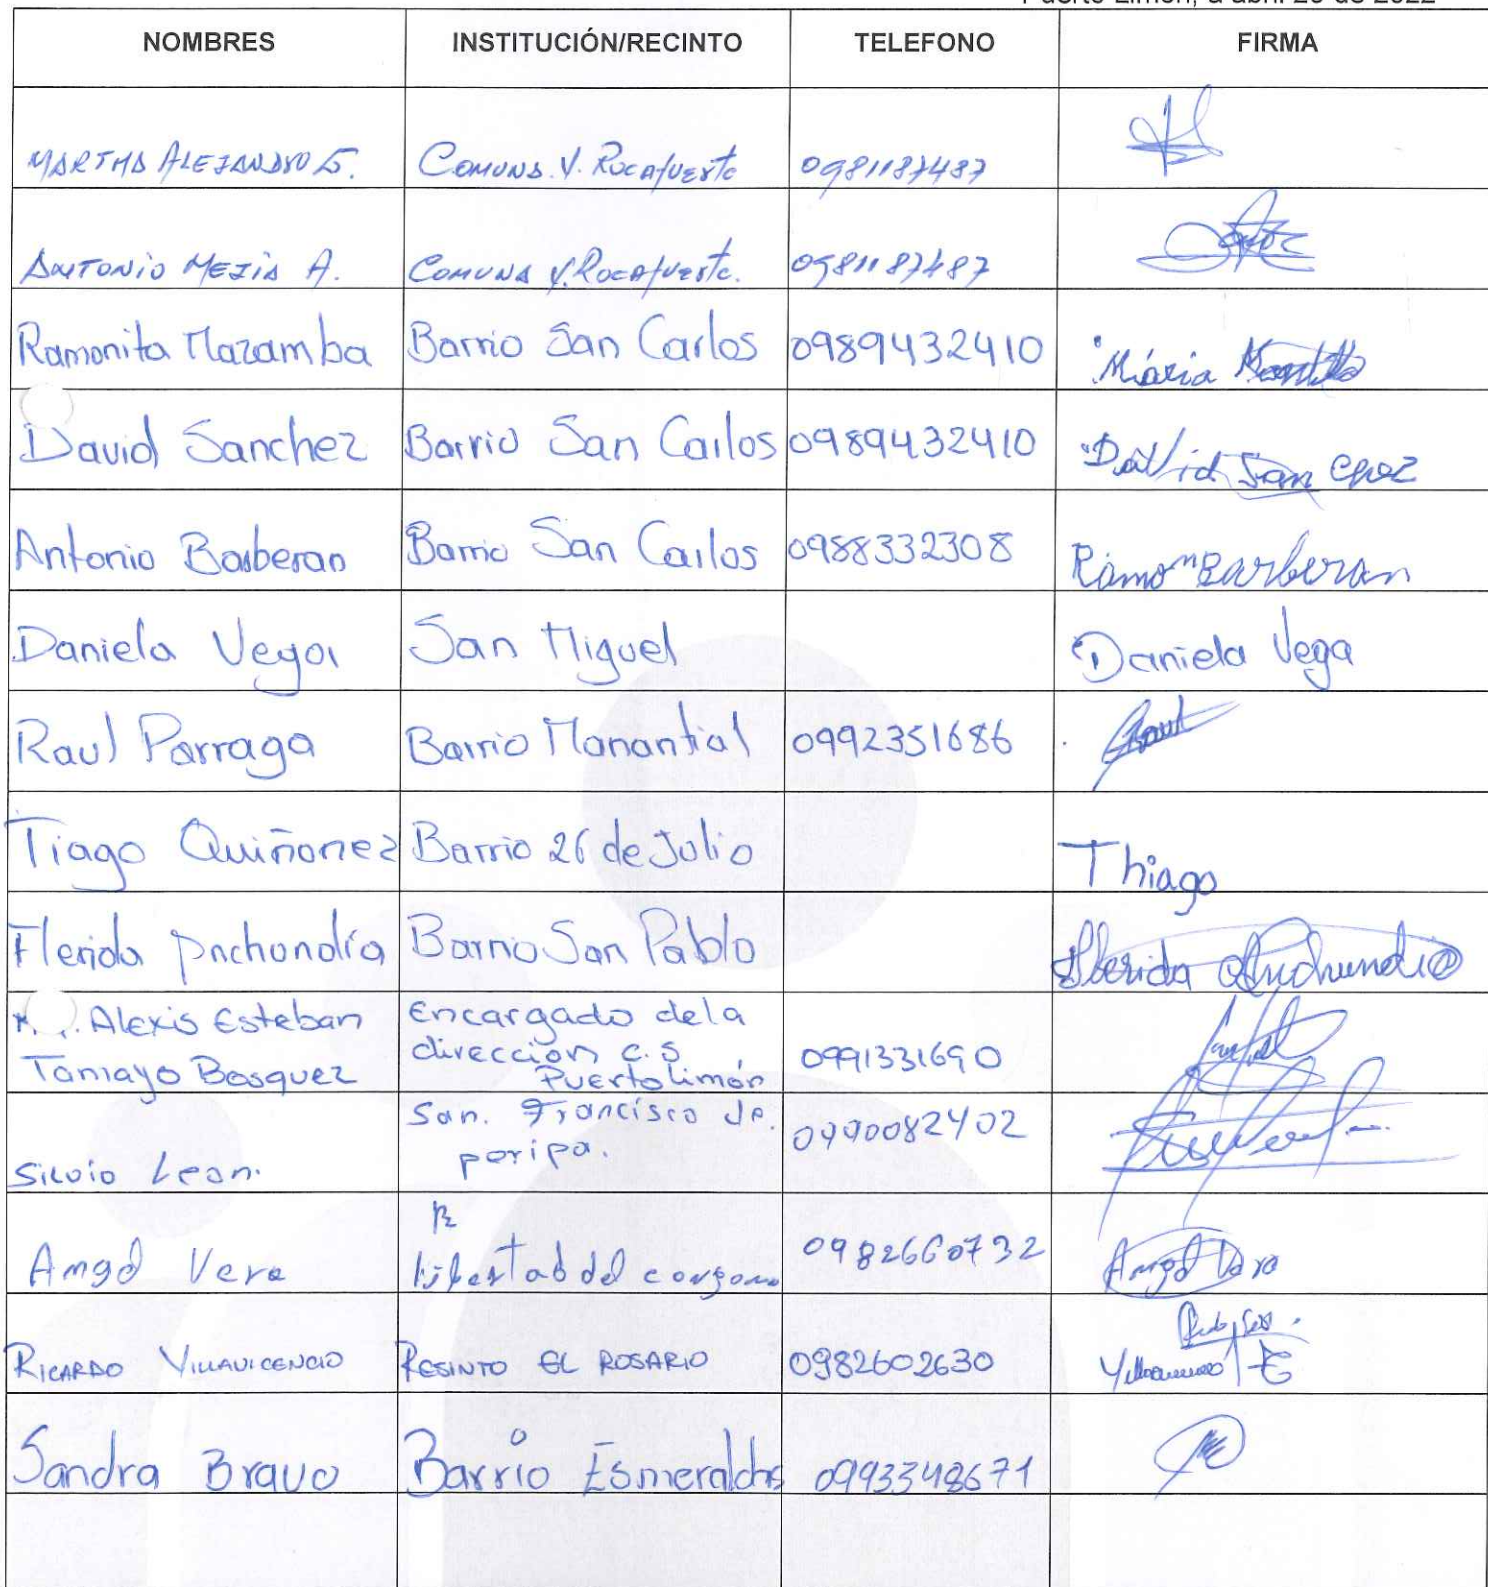 Puerto Limón, a abril 20 de 2022
NOMBRES INSTITUCIÓN/RECINTO TELEFONO FIRMA
MARTHA ALEJANDRO G. COMUNA. V. ROCAFUERTE 0981187487
ANTONIO MEJIA A. COMUNA V. ROCAFUERTE. 0981187487
Ramonita Mazamba Barrio San Carlos 0989432410 Mária
David Sanchez Barrio San Carlos 0989432410 David San chez
Antonio Barberan Barrio San Carlos 0988332308 Ramon Barberan
Daniela Vega San Miguel Daniela Vega
Raul Parraga Barrio Manantial 0992351686
Tiago Quiñonez Barrio 26 de Julio Thiago
Flerida Anchundia Barrio San Pablo Flerida Anchundia
Alexis Esteban Tamayo Basquez Encargado de la dirección c.s. Puerto Limón 0991331690
Silvio Leon. San. Francisco de. peripa. 0990082402
Angel Vera Libertad del congoma 0982660732 Angel Vera
RICARDO VILLAVICENCIO RESINTO EL ROSARIO 0982602630
Sandra Bravo Barrio Esmeraldas 0993348671